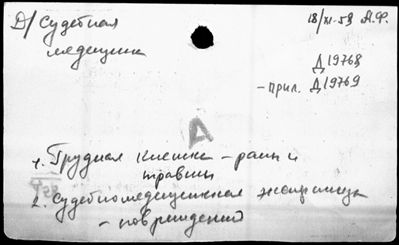 Д/ судебная
медицина
18/XI-59 А.Ф.
Д19768
- прил. Д19769
Д
1. Грудная клетка - раны и
травмы
2. Судебномедицинская экспертиза
- повреждений